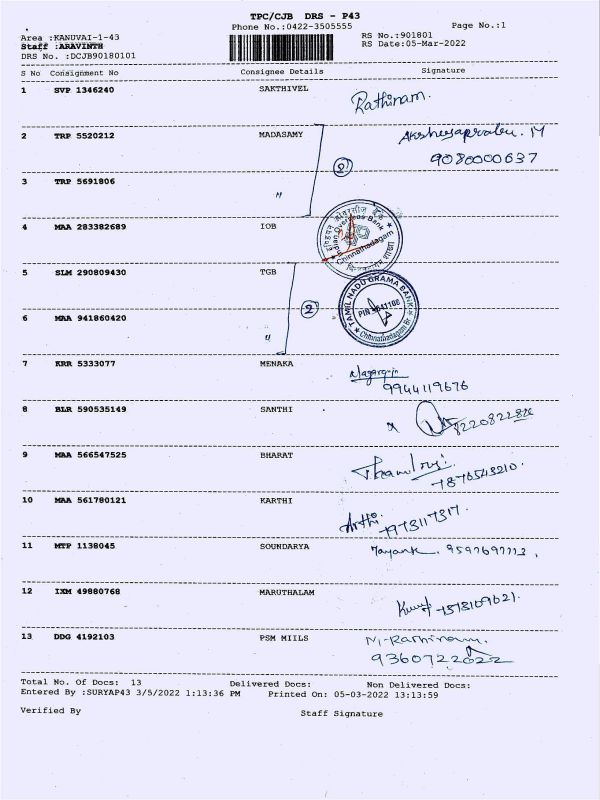 TPC/CJB DRS - P43
Phone No.:0422-3505555
Page No.:1
Area :KANUVAI-1-43
Staff :ARAVINTH
DRS No. :DCJB90180101
RS No.:901801
RS Date:05-Mar-2022
S No Consignment No Consignee Details Signature
1 SVP 1346240 SAKTHIVEL Rathinam.
2 TRP 5520212 MADASAMY
9080000637
3 TRP 5691806 "
4 MAA 283382689 IOB
Indian Overseas Bank
Chinnathadagam
5 SLM 290809430 TGB 2
TAMIL NADU GRAMA BANK
PIN 641108
Chinnathadagam Br
6 MAA 941860420 "
7 KRR 5333077 MENAKA
9944119676
8 BLR 590535149 SANTHI
9 MAA 566547525 BHARAT
7876543210.
10 MAA 561780121 KARTHI Arthi
11 MTP 1138045 SOUNDARYA Mayank.
12 IXM 49880768 MARUTHALAM
13 DDG 4192103 PSM MIILS N. Rathinam.
9360722022
Total No. Of Docs: 13 Delivered Docs: Non Delivered Docs:
Entered By :SURYAP43 3/5/2022 1:13:36 PM Printed On: 05-03-2022 13:13:59
Verified By Staff Signature